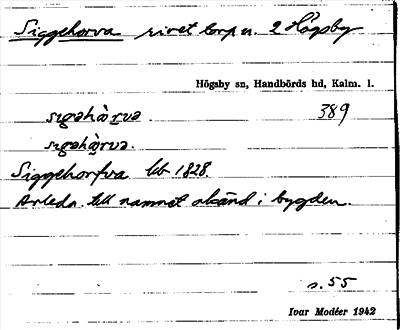 Siggehorva rivet torp u. 2 Högsby
Högsby sn, Handbörds hd, Kalm. l.
sigəhàrva. 389
sigəhàrva.
Siggehorfva kb 1828
Anledn. till namnet okänd i bygden.
s. 55
Ivar Modéer 1942